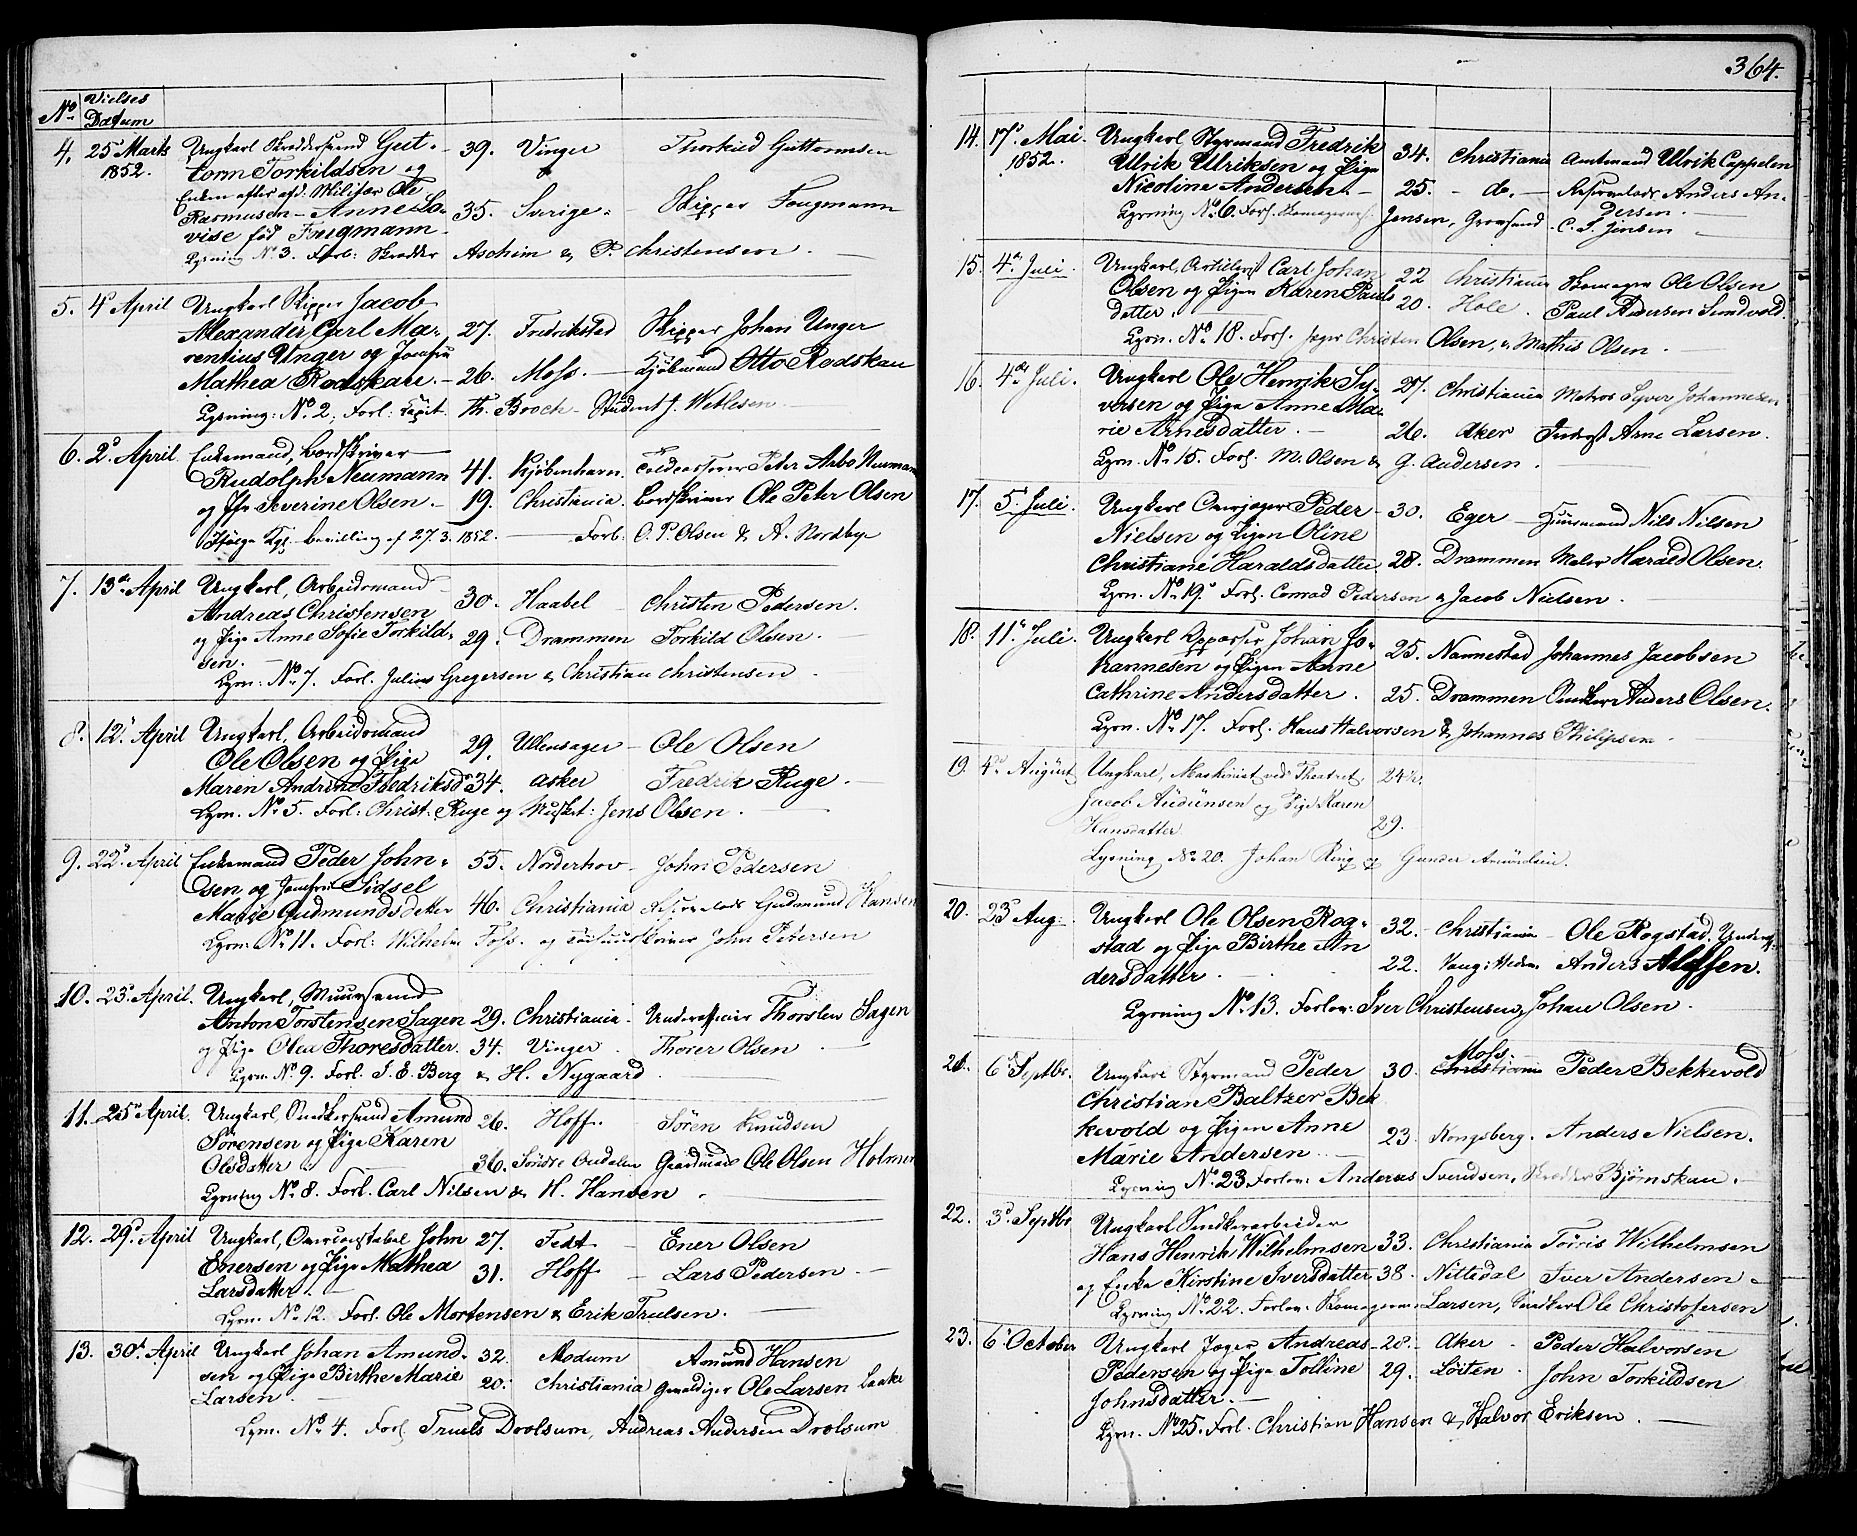 No Vielses
Datum
4. 25 Marts 1852. Ungkarl Skræddersvend Gut- 39. Vinger Thorkild Guttormsen
torm Torkildsen og
Enken efter afd. Militær Ole
Rasmusen - Anne Lo- 35. Sverige. Skipper Fougmann
vise fød Fougmann
Lysning No 3. Forl: Skrædder Aschim & P. Christensen.
5. 4de April Ungkarl Skipper Jacob
Alexander Carl Ma- 27. Fredrikstad Skipper Johan Unger
rentius Unger og Jomfru
Mathea Rodskau. 26. Moss. Kjøbmand Otto Rodskau
Lysning: No 2, Forl: Capit. Th. Broch - Student J. Wetlesen
6. 2de April. Enkemand, Bordskriver
Rudolph Neumann 41. Kjøbenhavn. Toldcasserer Peter Arbo Neumann
og Jfr Severine Olsen. 19. Christiania. Bordskriver Ole Peter Olsen
Ifølge Kgl. Bevilling af 27.3.1852. Forl: O. P. Olsen & A. Nordbye
7. 13de April Ungkarl, Arbeidsmand
Andreas Christensen 30. Haabel Christen Pedersen.
og Pige Anne Sofie Torkild- 29. Drammen Torkild Olsen.
sen.
Lysn: No 7. Forl. Julius Gregersen & Christian Christensen.
8. 12te April Ungkarl, Arbeidsmand
Ole Olsen og Pige 29. Ullensager Ole Olsen
Maren Andrine Fredriksd. 34. Asker Fredrik Ruge.
Lysn. No 5. Forl: Christ: Ruge og Musket: Jens Olsen.
9. 22de April Enkemand Peder John- 55. Norderhov John Pedersen
sen og Jomfru Sidsel
Marie Gudmundsdatter 46. Christiania Gudmund Hansen
Lysn: No 11. Forl: Wilhelm Foss. og John Petersen
10. 23de April. Ungkarl, Muursvend
Anton Torstensen Sagen 29. Christiania. Underofficier Thorsten Sagen
og Pige Olea Thoresdatter. 34. Vinger. Thorer Olsen
Lysn. No 9. Forl. J. E. Berg & H. Nygaard
11. 25de April Ungkarl, Snedkersvend Amund 26. Hoff. Søren Knudsen
Sørensen og Pige Karen
Olesdatter 36. Søndre Oudalen Gaardmand Ole Olsen Holmen
Lysning No 8. Forl. Carl Nilsen & H. Hansen.
12. 29de April Ungkarl, Overconstabel John 27. Fedt Ener Olsen
Enersen og Pige Mathea 31. Hoff Lars Pedersen.
Larsdatter.
Lysn. No 12. Forl. Ole Mortensen & Erik Truelsen.
13. 30te April Ungkarl Johan Amund- 32. Modum Amund Hansen
sen og Pige Birthe Marie 20. Christiania Gevaldiger Ole Larsen Laake
Larsen.
Lysn. No 4. Forl. Truels Drolsum, Andreas Andersen Drolsum
364.
14. 17de Mai 1852. Ungkarl Styrmand Fredrik 34. Christiania Amtmand Ulrik Cappelen
Ulrik Ulriksen og Pige
Nicoline Andersen. 25. - do. - Anders An-
dersen.
Lysning No 6. Forl. Jensen, Gronsund. C. F. Jensen
15. 4de Juli. Ungkarl, Artillerist Carl Johan 22 Christiania Skomager Ole Olsen
Olsen og Pigen Karen Pauls 20. Hole. Paul Andersen Sundvold.
datter.
Lysn. No 18. Forl. Jæger Christen Olsen, & Mathis Olsen.
16. 4de Juli. Ungkarl Ole Henrik Sy- 27. Christiania Matros Syver Johannesen
versen og Pige Anne Ma-
rie Arnesdatter. 26. Aker Inderst Arne Larsen.
Lysn. No 15. Forl. M. Olsen & G. Andersen.
17. 5te Juli. Ungkarl Overjæger Peder 30. Eger Huusmand Nils Nilsen
Nielsen og Pigen Oline
Christiane Haraldsdatter. 28. Drammen Maler Harald Olsen.
Lysn. No 19. Forl. Conrad Pedersen & Jacob Nielsen.
18. 11te Juli. Ungkarl Oppasser Johan Jo- 25. Nannestad Johannes Jacobsen
hannesen og Pigen Anne
Cathrine Andersdatter. 25. Drammen Snedker Anders Olsen.
Lysn. No 17. Forl. Hans Halvorsen & Johannes Philipsen.
19. 4de August Ungkarl, Maskinist ved Theatret, 24½.
Jacob Audunsen og Pige Karen
Hansdatter 29.
Lysning No 20. Johan Ring og Gunder Amundsen.
20. 23de Aug. Ungkarl Ole Olsen Rog- 32. Christiania Ole Rogstad,
stad og Pige Birthe An 22. Vang: Hedm. Anders Alfsen.
dersdatter.
Lysning No 13. Forlov: Iver Christensen, Johan Olsen.
21. 6te Septbr. Ungkarl Styrmand Peder 30. Moss. Christiania Peder Bekkevold
Christian Baltzer Bek
kevold og Pigen Anne 23. Kongsberg. Anders Nielsen.
Marie Andersen.
Lysning No 23. Forlov: Andreas Svendsen, Skrædder Bjørnskau.
22. 3de Septbr Ungkarl Snedkerarbeider
Hans Henrik Wilhelmsen 33. Christiania Tøris Wilhelmsen
og Enke Kirstine Iversdatter 38. Nittedal Iver Andersen
Lysning No 22. Forlov: Skomagerm. Larsen, Snedker Ole Christofersen
23. 6te October Ungkarl Jæger Andreas 28. Aker Peder Halvorsen
Pedersen og Pige Tolline 29. Løiten. John Torkildsen
Johnsdatter.
Lysn. No 25. Forl. Christian Hansen & Halvor Eriksen.